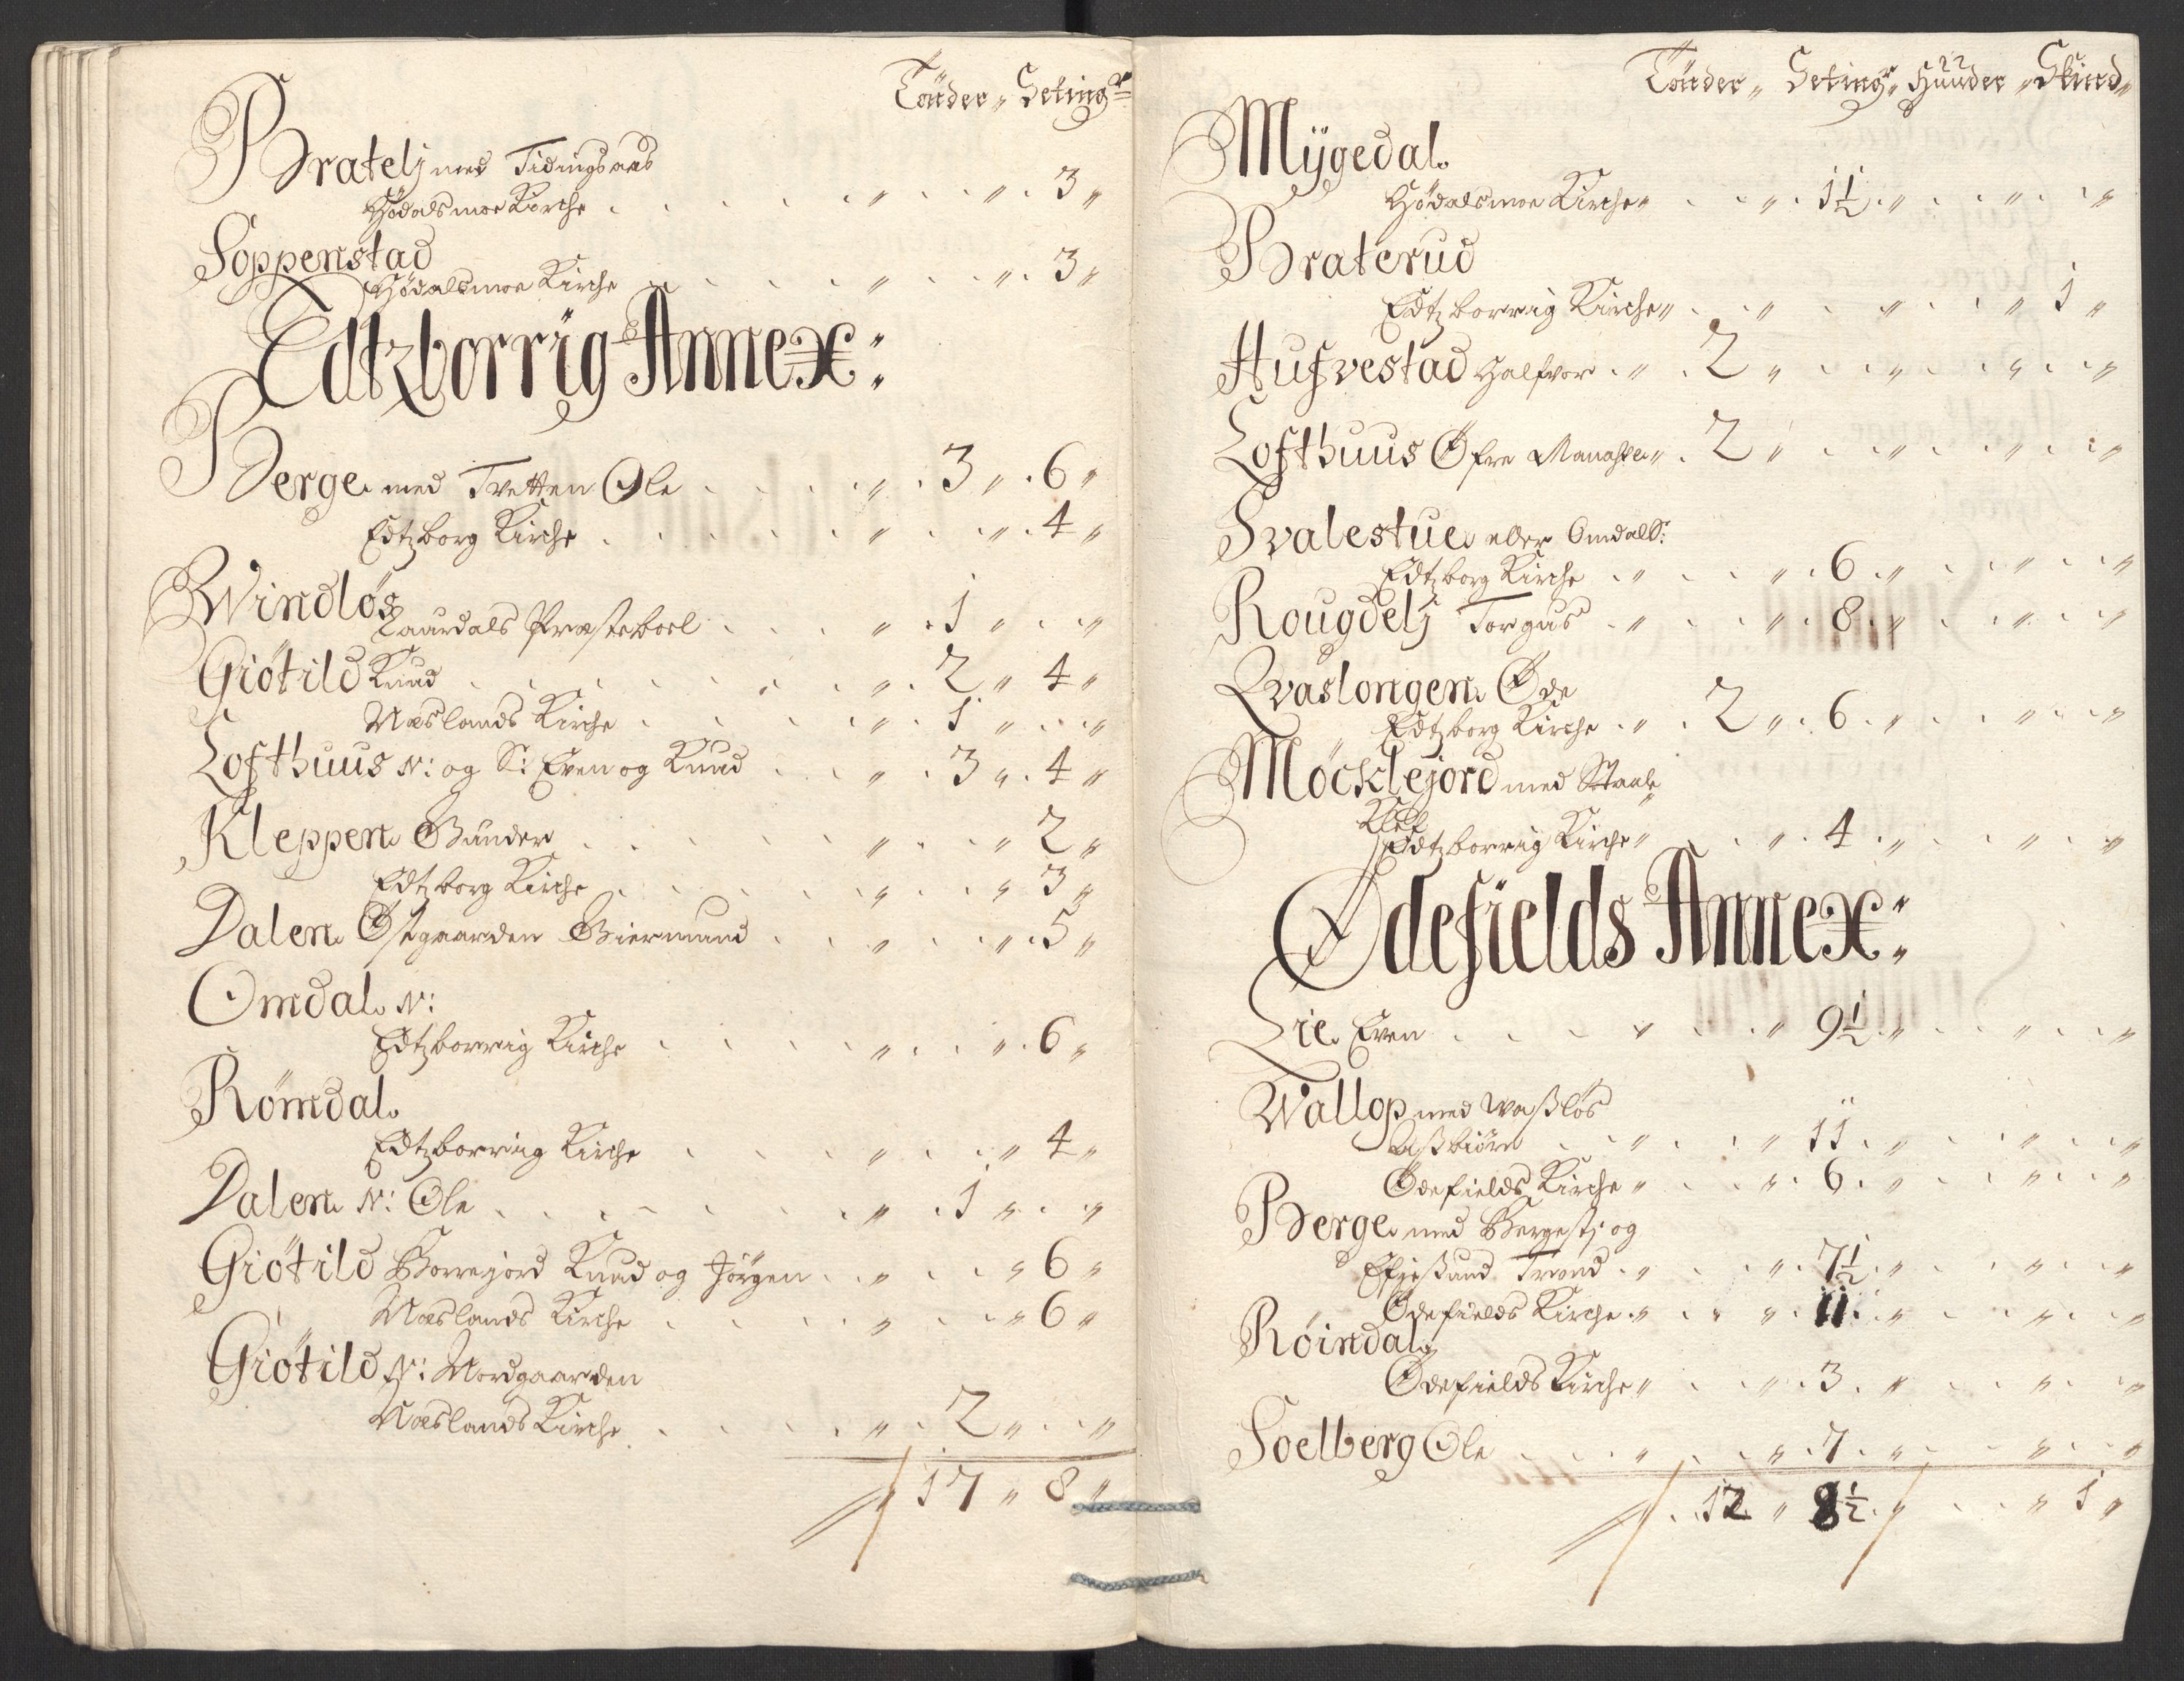 Tönder „ Seting:
Bratelj med Tidingsaas
Hödalsmoe Kirche . . . . . „ . . „ . 3 „
Soppenstad
Hödalsmoe Kirche . . . . „ . . „ . 3 „
Edtzborrig Annex:
Berge med Tvetten Ole . . . . „ . 3 „ . 6 „
Edtzborg Kirche . . . . . „ . . „ . 4 „
Windlös
Laurdals Præsteboel . . . „ . 1 „ . . „
Giötild Knud . . . . . . . „ . 2 „ 4 „
Næslands Kirche . . . . . „ . 1 „ . . „
Lofthuus N: og S: Even og Knud . . . „ . 3 „ . 4 „
Kleppen Gunder . . . . . „ . . „ 2 „
Edtzborg Kirche . . . . . „ . . „ 3 „
Dalen Østgaarden Giermund . . „ . . „ . 5 „
Omdal N:
Edtzborrig Kirche . . . . „ . . „ . 6 „
Römdal
Edtzborrig Kirche . . . . „ . . „ 4 „
Dalen N: Ole . . . . . . . „ . 1 „ . . „
Giötild Borrejord Knud og Jörgen . . „ . . „ 6 „
Næslands Kirche . . . . „ . . „ 6 „
Giötild N: Nordgaarden
Næslands Kirche . . . . . „ . 2 „ . . „
17 „ 8 „
Tönder „ Seting: „ Huuder „ Skind „
Mÿgedal
Hödalsmoe Kirche „ . . „ . 1½ . „ . . „ . . „
Braterud
Edtzborrig Kirche „ . . „ . . „ . . „ 1 „
Hufvestad Halfvor . „ . 2 „ . . „ . . „ . . „
Lofthuus Øfre „ . 2 „ . . „ . . „ . . „
Svalestue eller Omdal S:
Edtzborg Kirche . „ . . „ . 6 . „ . . „ . . „
Rougdelj Torgus . „ . . „ . 8 . „ . . „ . . „
Qvaslongen Øde
Edtzborg Kirche . „ . 2 „ . 6 . „ . . „ . . „
Möcklejord med Staale
Klef
Edtzborrig Kirche „ . . „ . 4 . „ . . „ . . „
Ødefields Annex:
Lie Even . . . „ . . „ 9½ . „ . . „ . . „
Wallop med Waßlös
Aßbiörn . . „ . . „ 11 . „ . . „ . . „
Ödefields Kirche „ . . „ . 6 . „ . . „ . . „
Berge med Bergestj og
Trond . „ . . „ . 7½ . „ . . „ . . „
Ödefields Kirche . „ . „ „ . 11 . „ . . „ . . „
Röindal
Ödefields Kirche „ . . „ . 3 . „ . . „ . . „
Soelberg Ole . . . „ . . „ . 7 . „ . . „ . . „
. 12 „ 8½ . „ . . „ 1 „